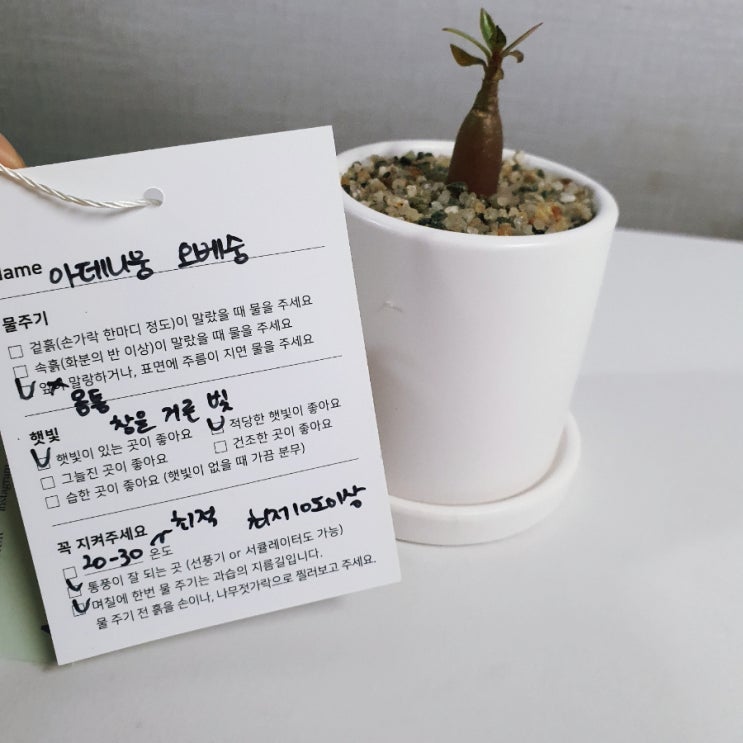 Name 아데니움 오베숨
물주기
겉흙(손가락 한마디 정도)이 말랐을 때 물을 주세요
속흙(화분의 반 이상)이 말랐을 때 물을 주세요
말랑하거나, 표면에 주름이 지면 물을 주세요
몸통
창을 거른 빛
햇빛
햇빛이 있는 곳이 좋아요 적당한 햇빛이 좋아요
그늘진 곳이 좋아요 건조한 곳이 좋아요
습한 곳이 좋아요 (햇빛이 없을 때 가끔 분무)
꼭 지켜주세요 최적 최저10도이상
20-30 온도
통풍이 잘 되는 곳 (선풍기 or 서큘레이터도 가능)
며칠에 한번 물 주기는 과습의 지름길입니다.
물 주기 전 흙을 손이나, 나무젓가락으로 찔러보고 주세요.